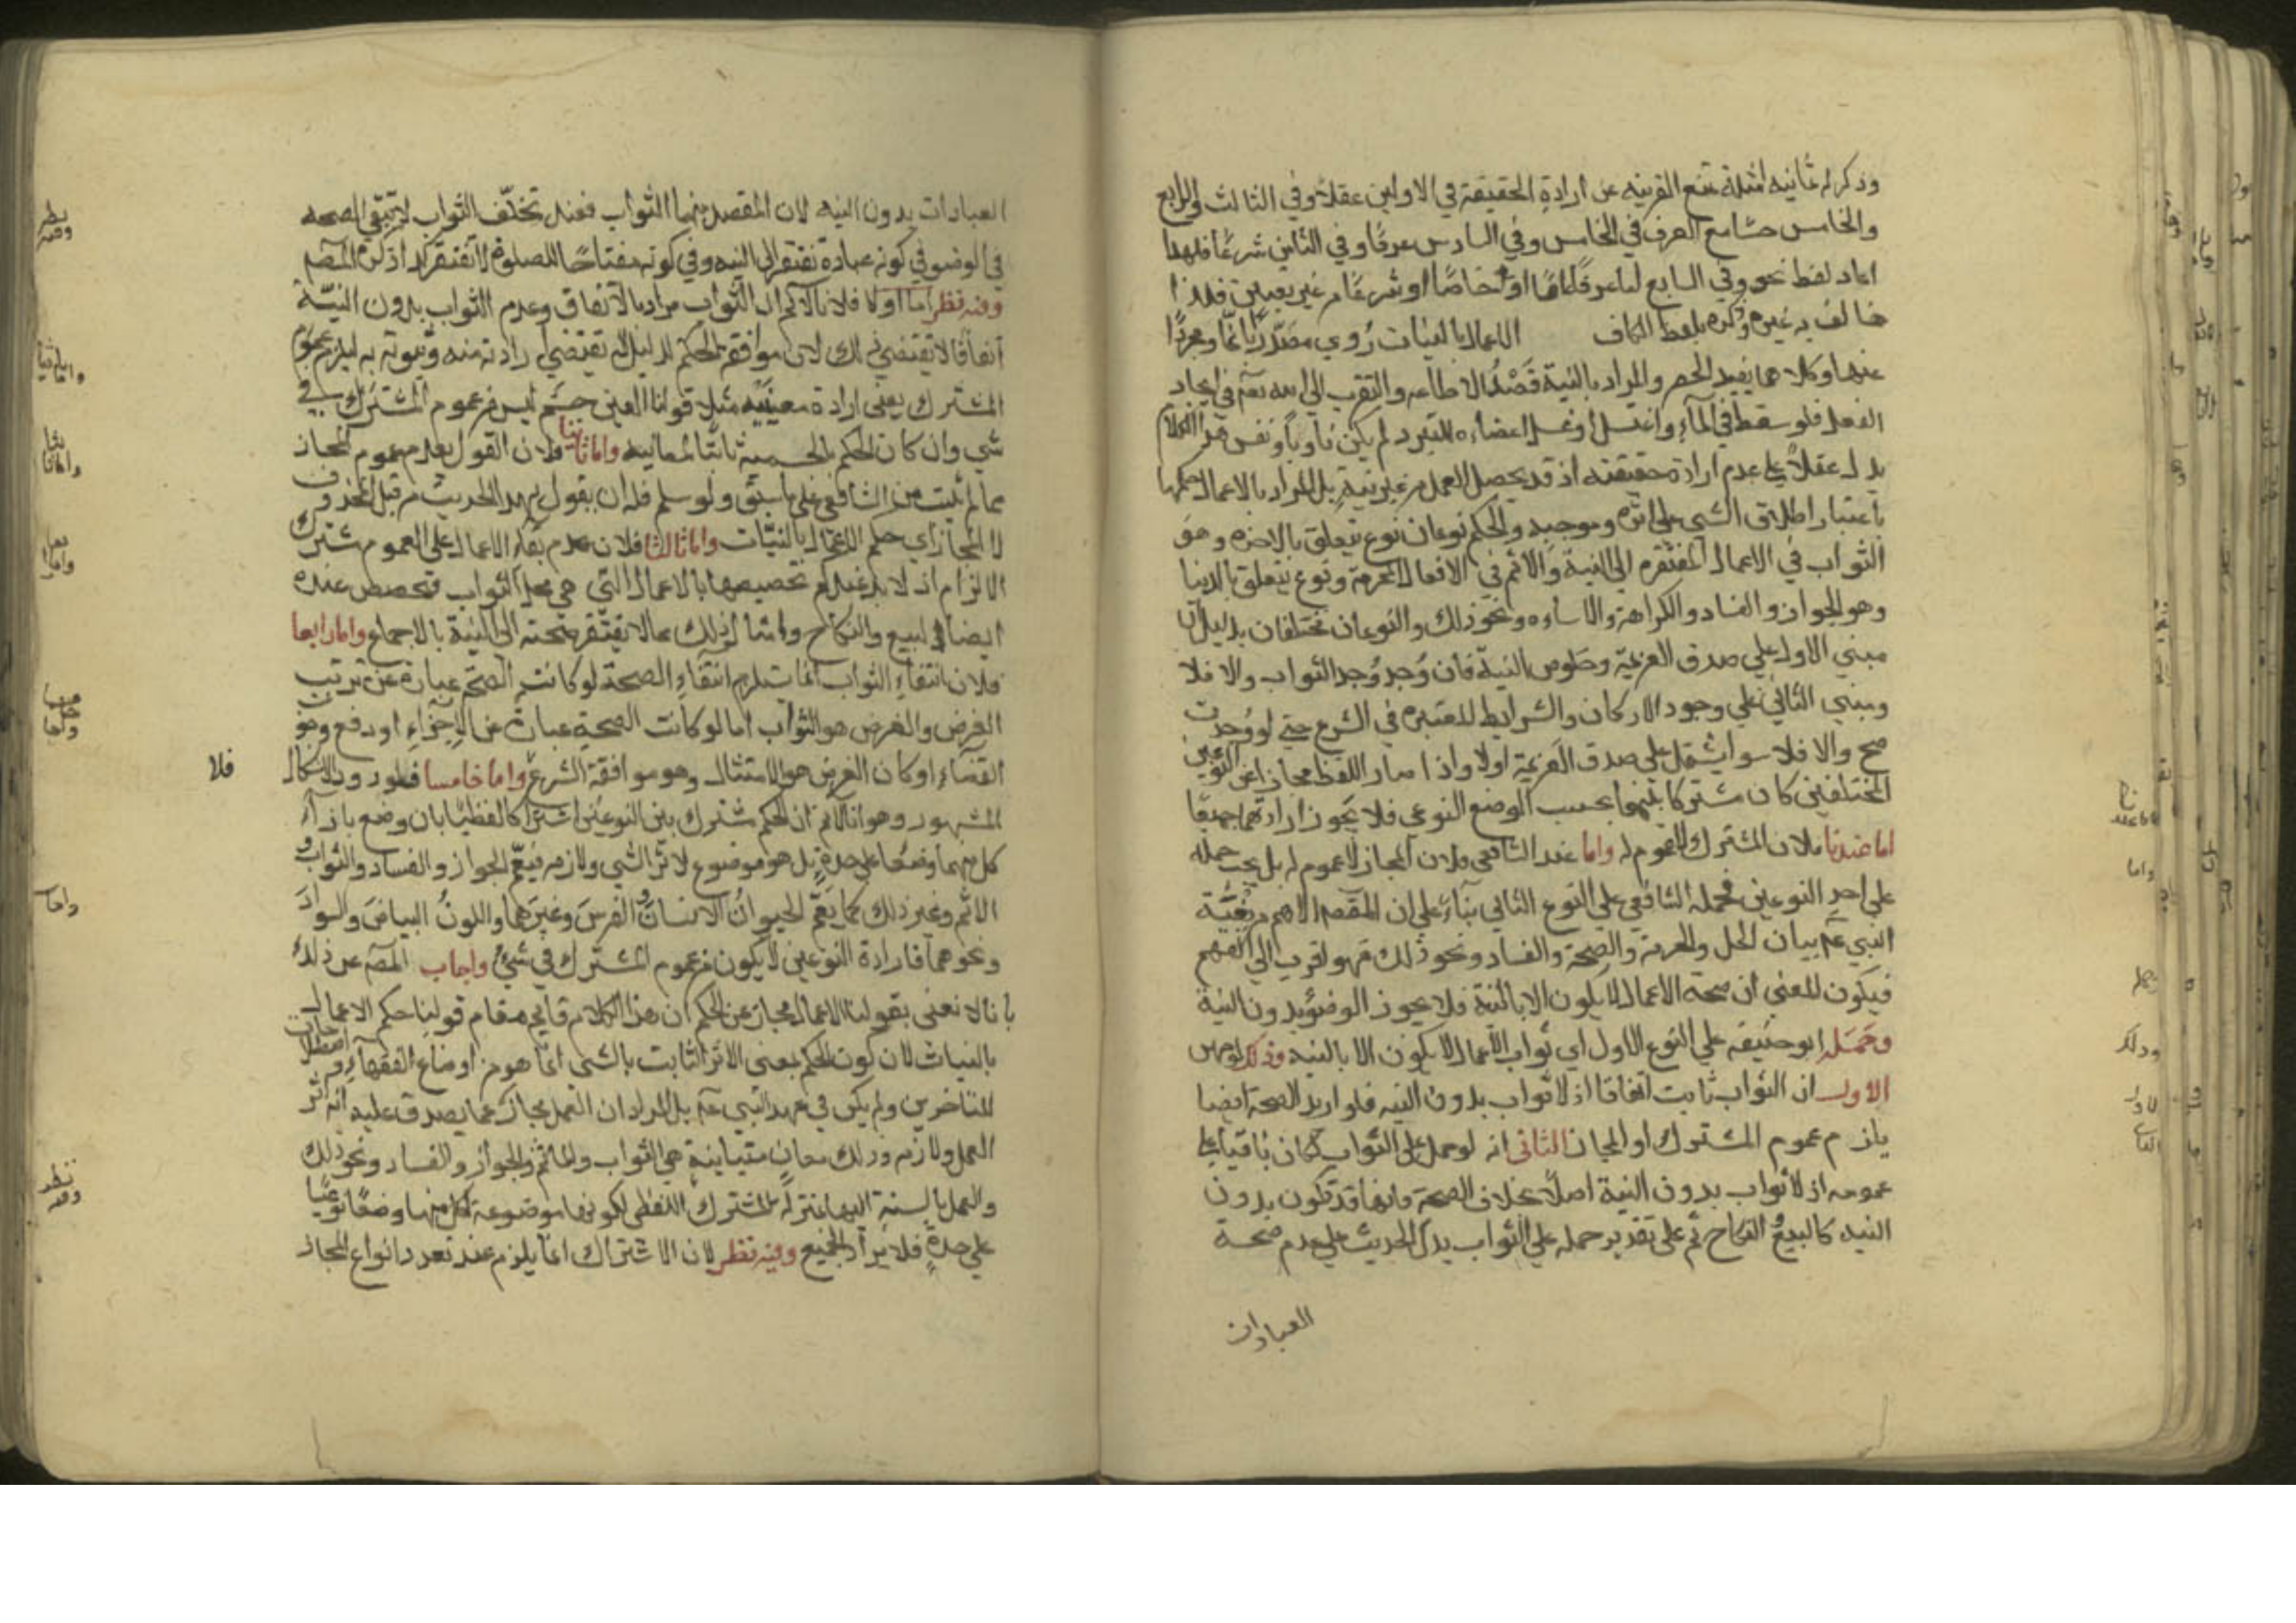 وذكر له ثمانية امثلة تمنع القرينه عن ارادة الحقيقة في الاولين عقلا وفي الثالث والرابع
والخامس حسا مع العرف في الخامس وفي السادس عرفا وفي الثامن شرعا فلهذا
اعاد لفظ نحو وفي السابع اما عرفا عاما او خاصا او شرعا من غير تعيين فلذا
خالف به غيره وذكره بلفظ الكاف الاعمال بالنيات روي مصدرا بانما ومجردا
عنها وكلاهما يفيد الحصر والمراد بالنية قصد الاطاعه والتقرب الى الله تعم في ايجاد
الفعل فلو سقط في الماء واغتسل او غسل اعضاءه للتبرد لم يكن ناويا ونفس هذا الكلام
يدل عقلا على عدم ارادة حقيقته اذ قد يحصل العمل من غير نية بل المراد بالاعمال حكمها
باعتبار اطلاق الشي على اثره وموجبه والحكم نوعان نوع يتعلق بالاخره وهو
الثواب في الاعمال المفتقره الى النية والاثم في الافعال المحرمة ونوع يتعلق بالدنيا
وهو الجواز والفساد والكراهة والاساءه ونحو ذلك والنوعان مختلفان بدليل ان
مبني الاول على صدق العزيمة وخلوص النية فان وجد وجد الثواب والا فلا
ومبني الثاني على وجود الاركان والشرايط المعتبره في الشرع حتى لو وجدت
صح والا فلا سوا يشتمل على صدق العزيمة اولا واذا صار اللفظ مجازا عن النوعين
المختلفين كان مشتركا بينهما بحسب الوضع النوعي فلا يجوز ارادتهما جميعا
اما عندنا فلان المشترك لا عموم له واما عند الشافعي فلان المجاز لا عموم له بل يجب حمله
على احد النوعين فحمله الشافعي على النوع الثاني بناء على ان المقصد الاهم من بعثة
النبي عم بيان الحل والحرمة والصحة والفساد ونحو ذلك فهو اقرب الى الفهم
فيكون المعني ان صحة الاعمال لا يكون الا بالنية فلا يجوز الوضوء بدون النية
وحمله ابو حنيفه على النوع الاول اي ثواب الاعمال لا يكون الا بالنيه وذلك لوجهين
الاول ان الثواب ثابت اتفاقا اذ لا ثواب بدون النيه فلو اريد الصحة ايضا
يلزم عموم المشترك او المجاز الثاني انه لو حمل على الثواب لكان باقيا على
عمومه اذ لا ثواب بدون النية اصلا بخلاف الصحة فانها قد تكون بدون
النيه كالبيع والنكاح ثم على تقدير حمله على الثواب يدل الحديث على عدم صحة
العبادات
العبادات بدون النيه لان المقصد منها الثواب فعند تخلف الثواب لا تبقي الصحه
في الوضو في كونه عبادة تفتقر الى النيه وفي كونه مفتاحا للصلوة لا تفتقر كذا ذكره المصم
وفيه نظر اما اولا فلانا لا نم ان الثواب مراد بالاتفاق وعدم الثواب بدون النية
اتفاقا لا يقتضي ذلك لان موافقة الحكم للدليل لا يقتضي ارادته منه وثبوته به ليلزم عموم
المشترك يعني ارادة معنييه مثلا قولنا العين جسم ليس من عموم المشترك في
شي وان كان الحكم بالجسمية ثابتا لمعانيه واما ثانيا فلان القول بعدم عموم المجاز
مما لم يثبت من الشافعي على ما سبق ولو سلم فله ان يقول ان هذا الحديث من قبيل المحذوف
لا المجاز اي حكم الاعمال بالنيات واما ثالثا فلان عدم بقاء الاعمال على العموم مشترك
الالزام اذ لا بد عندكم من تخصيصها بالاعمال التي هي محل الثواب فتخصص عنده
ايضا البيع والنكاح وامثال ذلك مما لا يفتقر صحته الى النية بالاجماع واما رابعا
فلان انتفاء الثواب انما يستلزم انتفاء الصحة لو كانت الصحة عبارة عن ترتب
الغرض والغرض هو الثواب اما لو كانت الصحة عبارة عن الاجزاء او دفع وجوب
القضاء او كان الغرض هو الامتثال وهو موافقة الشرع واما خامسا فلورود الاشكال
المشهور وهو انا لا نم ان الحكم مشترك بين النوعين اشتراكا لفظيا بان وضع بازاء
كل منهما وضعا على حدة بل هو موضوع لاثر الشي ولازمه فيعم الجواز والفساد والثواب و
الاثم وغير ذلك كما يعم الحيوان الانسان والفرس وغيرهما واللون البياض والسواد
ونحوهما فارادة النوعين لا يكون من عموم المشترك في شي واجاب المصم عن ذلك
بانا لا نعني بقولنا الاعمال مجاز عن الحكم ان هذا الكلام قايم مقام قولنا حكم الاعمال
بالنيات لان كون الحكم بمعني الاثر الثابت بالشي انما هو من اوضاع الفقهاء و اصطلاحات
المتاخرين ولم يكن في عهد النبي عم بل المراد ان العمل مجاز عما يصدق عليه انه اثر
العمل ولازمه وذلك معان متباينة هي الثواب والماثم والجواز والفساد ونحو ذلك
والعمل بالنسبة اليها بمنزلة المشترك اللفظي لكونها موضوعة لكل منها وضعا نوعيا
على حدة فلا يراد الجميع وفيه نظر لان الاشتراك انما يلزم عند تعدد انواع المجاز